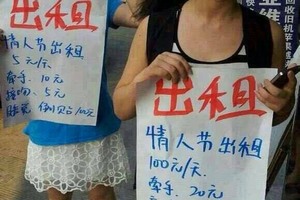 出租
情人节出租
5元/天
牵手10元
接吻:5元
出租
情人节出租
100元/天.
牵手.20元